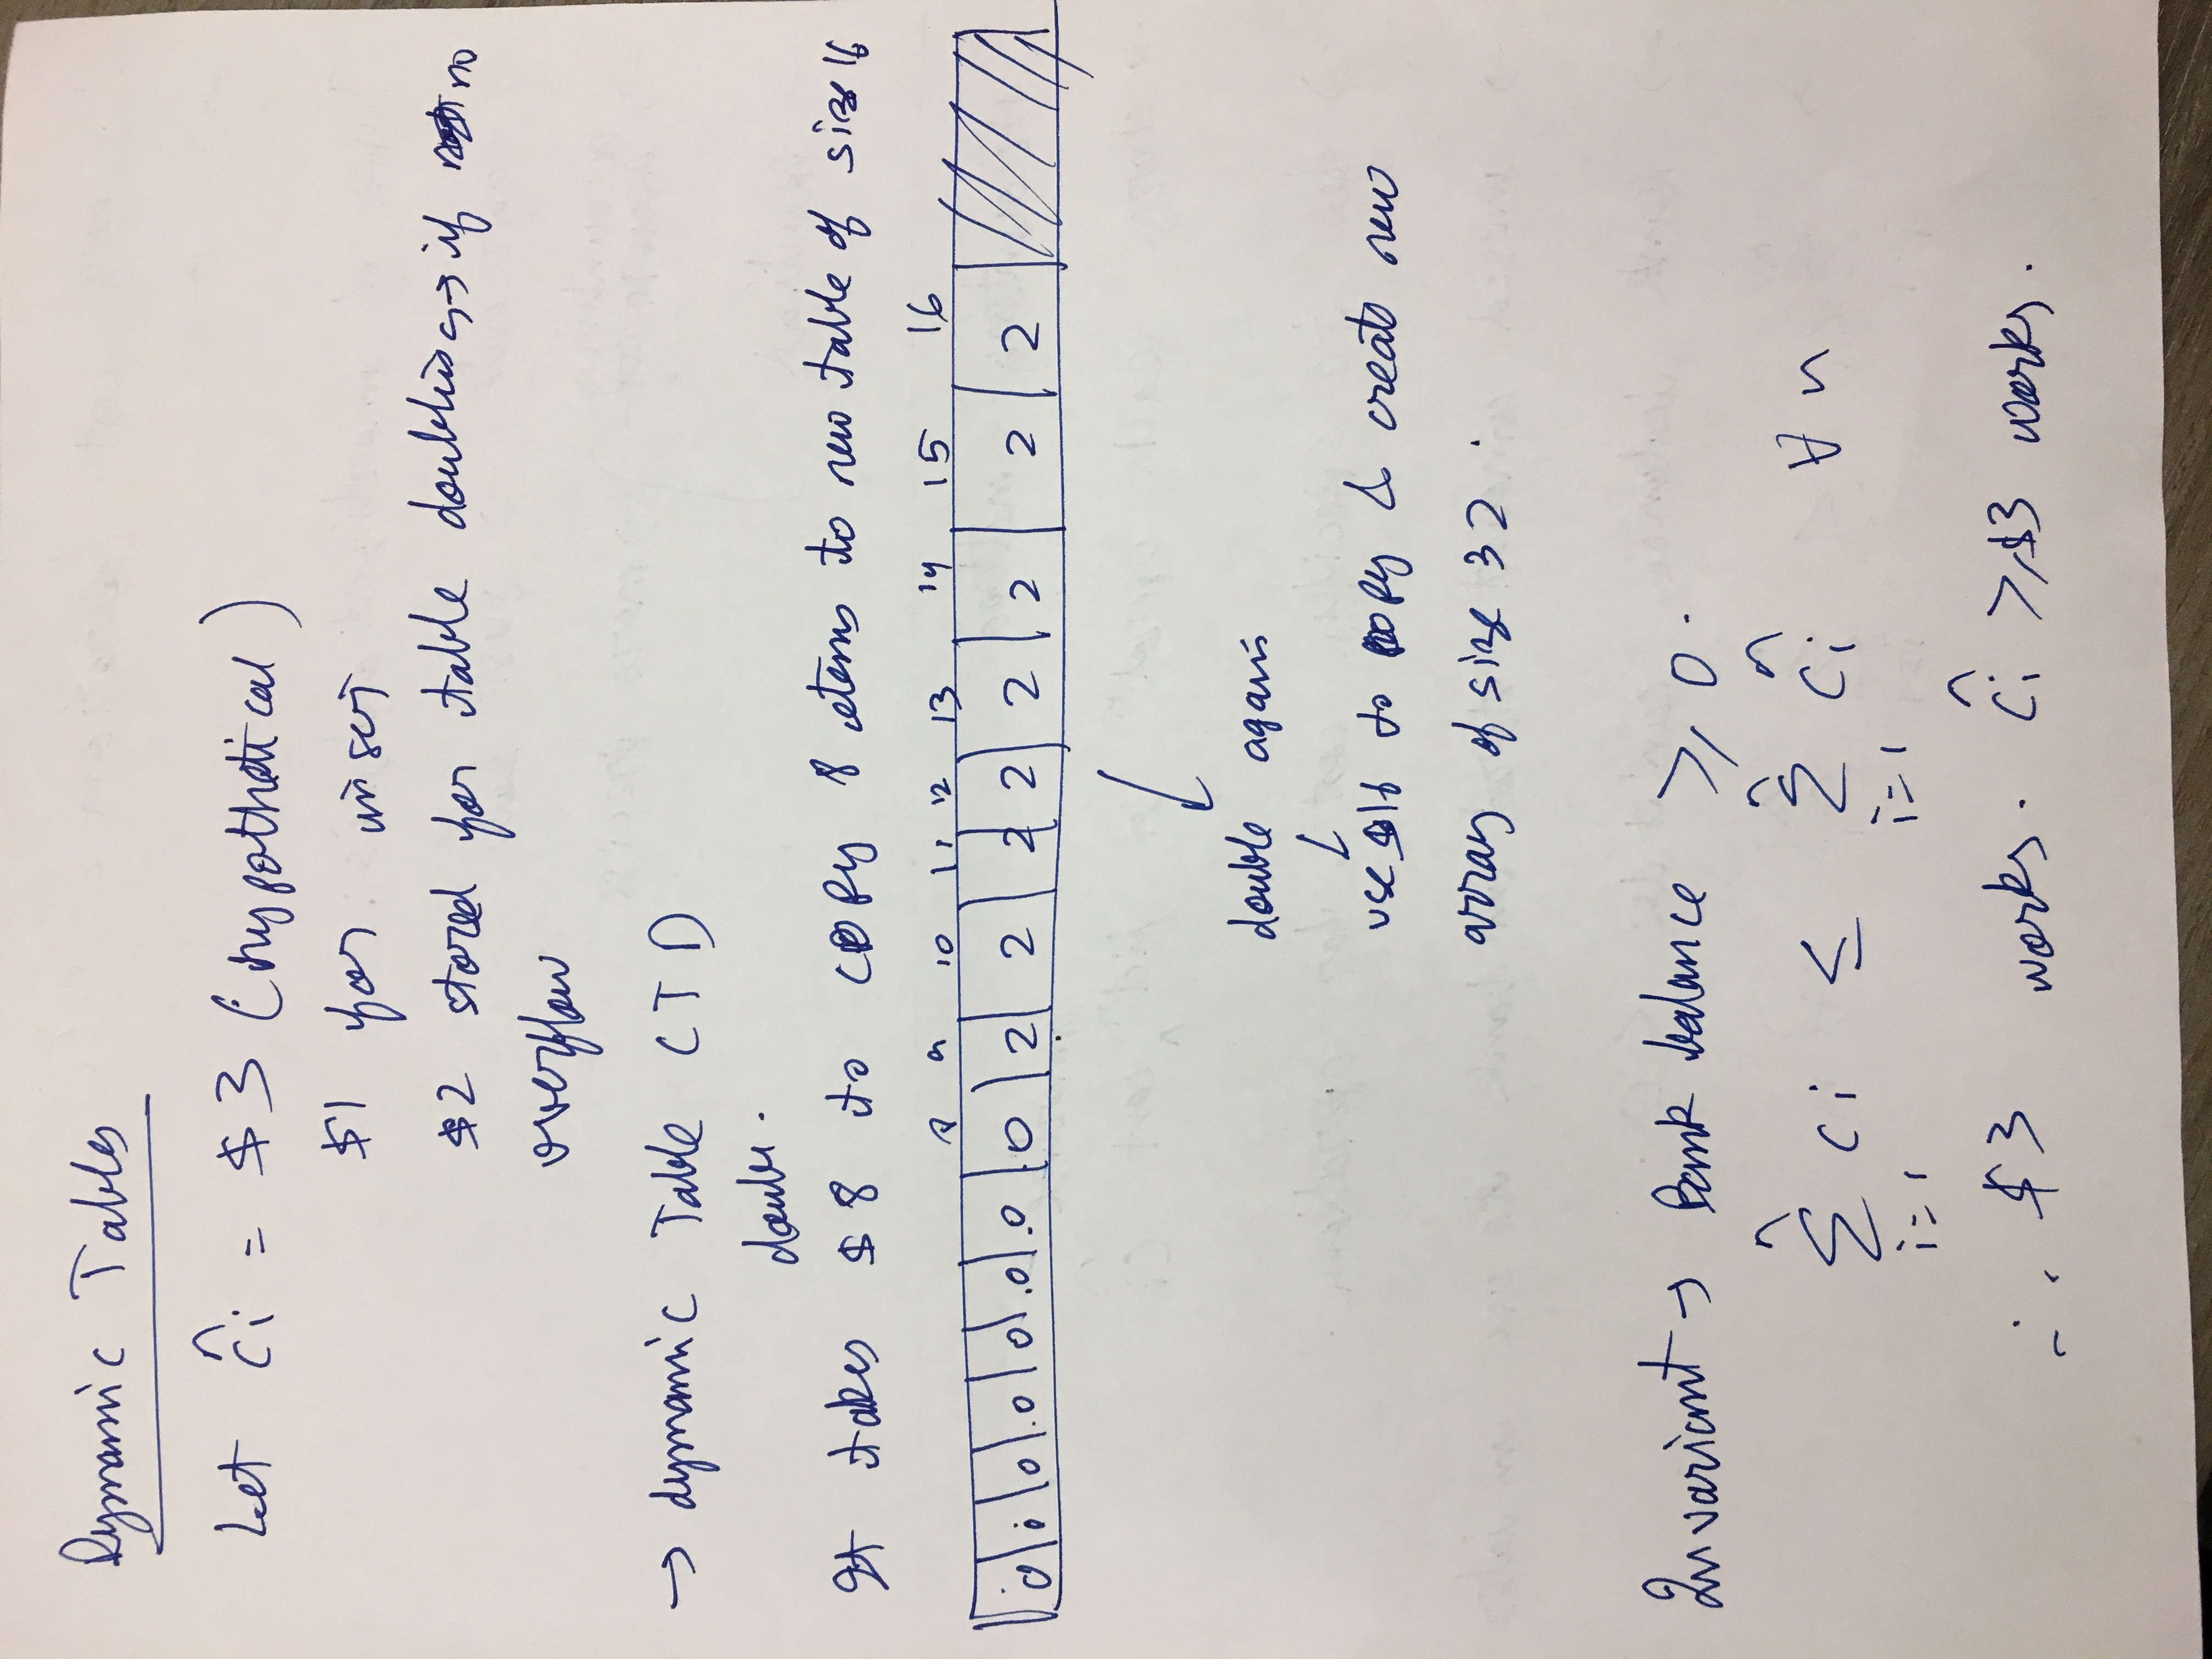 Dynamic Tables
Let ĉi = $3 (hypothetical)
$1 for insert
$2 stored for table doubling → if no
overflow
→ dynamic Table CTD
double.
It takes $8 to copy 8 items to new table of size 16
8 9 10 11 12 13 14 15 16
0 0 0 0 0 0 0 0 2 2 2 2 2 2 2 2
double again
use $16 to copy & create new
array of size 32.
Invariant → Bank balance ≥ 0.
n n
Σ ci ≤ Σ ĉi ∀ n
i=1 i=1
∴ $3 works. ĉi ≥ $3 works.